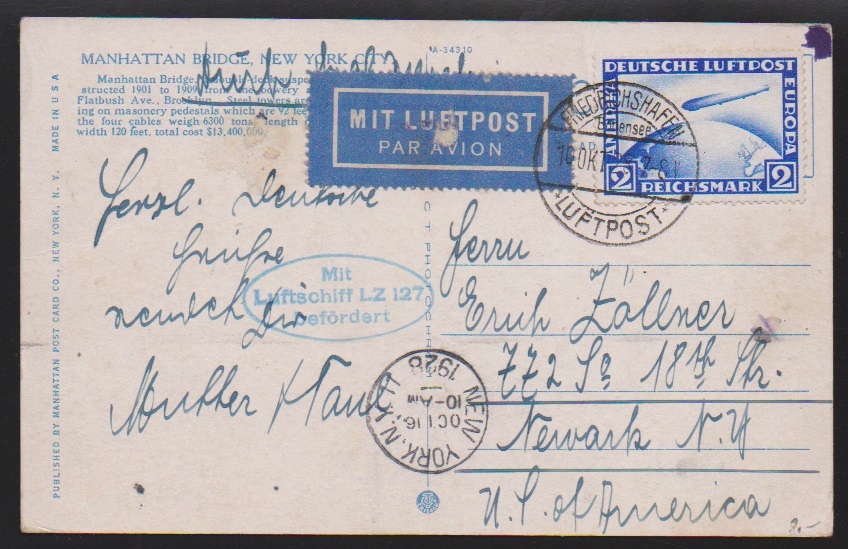 MANHATTAN BRIDGE, NEW YORK CITY
A-34310
Manhattan Bridge, double-deck suspe
structed 1901 to 1909 from the Bowery
Flatbush Ave., Brooklyn. Steel towers are
ing on masonry pedestals which are 92 fee
the four cables weigh 6300 tons, length
width 120 feet, total cost $13,400,000.
MIT LUFTPOST
PAR AVION
DEUTSCHE LUFTPOST
EUROPA
AMERIKA
2 REICHSMARK 2
FRIEDRICHSHAFEN
Bodensee
10 OKT 28 7-8
LUFTPOST
Herzl. Deutsche
Grüße
sendet Dir
Mutter
Mit
Luftschiff LZ 127
befördert
NEW YORK, N.Y.
OCT 16
10-AM
1928
Herrn
Erich Zöllner
772 So 18th Str.
Newark N.Y
U.S. of America
8.-
C T PHOTOCHR
PUBLISHED BY MANHATTAN POST CARD CO., NEW YORK, N. Y. MADE IN U S A